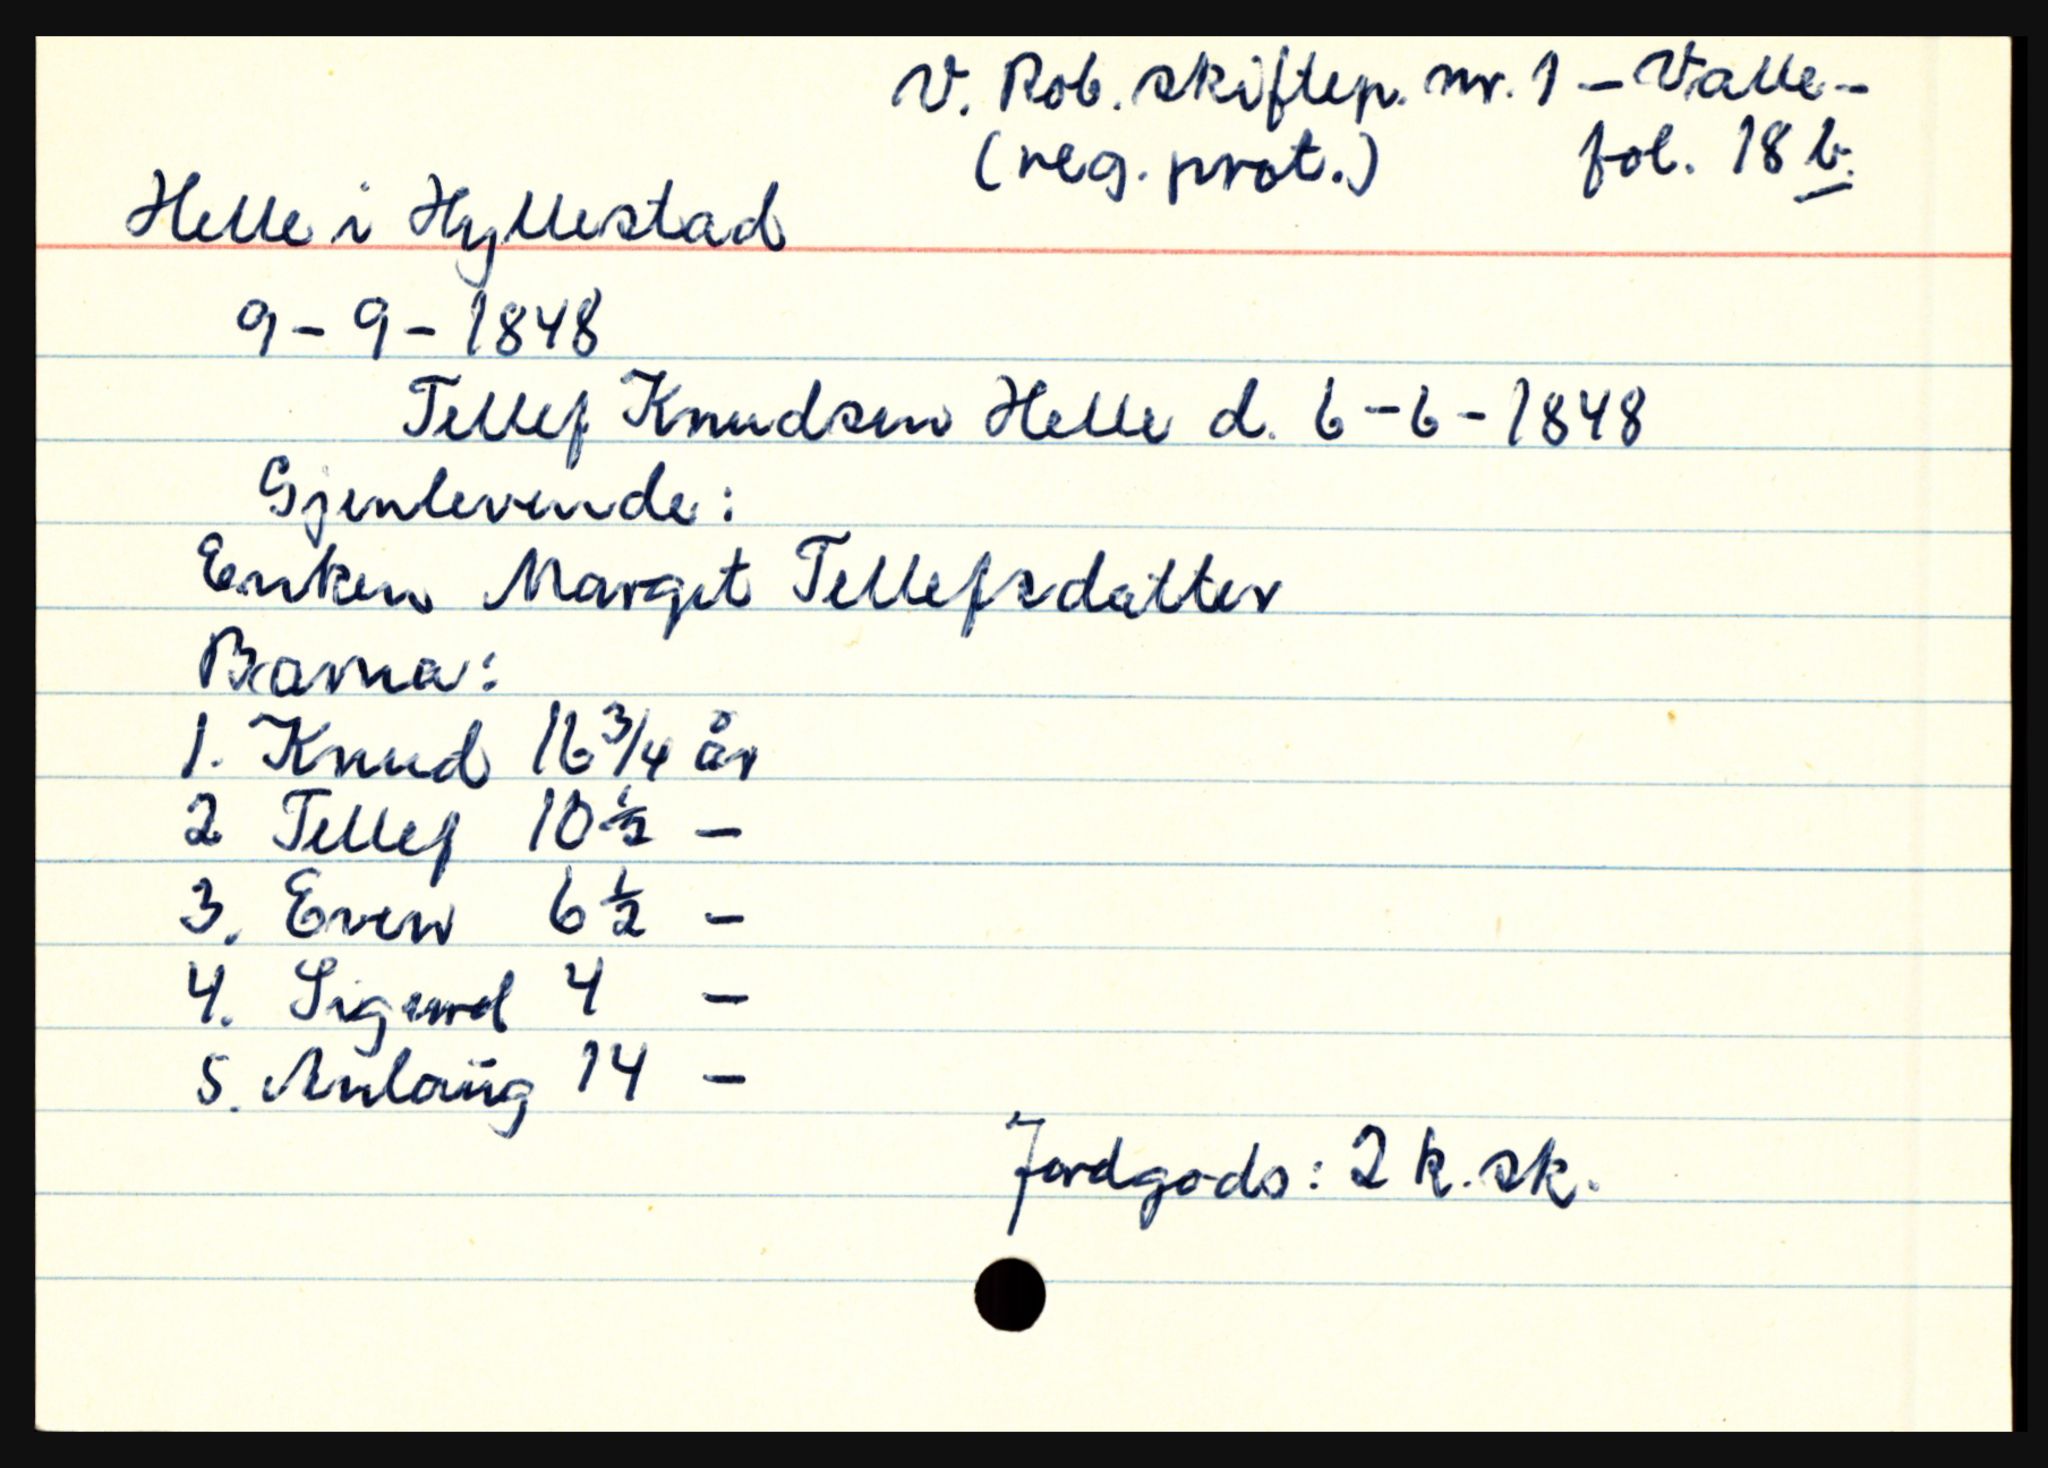 V. Rob. skiftep. nr. 1 - Valle -
(reg. prot.) fol. 18 b.
Helle i Hyllestad
9 - 9 - 1848
Tellef Knudsen Helle d. 6 - 6 - 1848
Gjenlevende:
Enken Margit Tellefsdatter
Barna:
1. Knud 16 3/4 år
2 Tellef 10 1/2 -
3. Even 6 1/2 -
4. Sigurd 4 -
5. Anlaug 14 -
Jordgods: 2 k. sk.